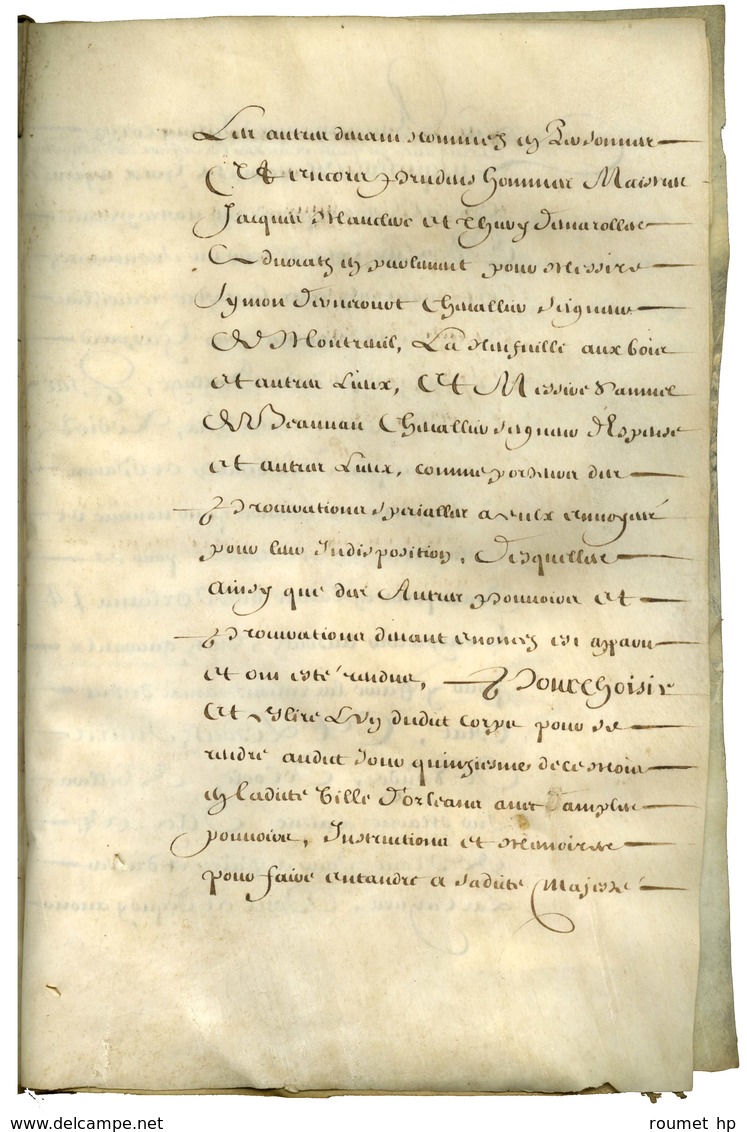 Les autres devant nommez en Personnes
Et encores Prudens hommes Maistres
Jacques Mauclerc et Thierry Demarolles
Advocats en parlement pour Messire
Symon Chevallier seigneur
De Montreuil, La Neufville aux bois
et autres Lieux, Et Messire Samuel
De Beauvau Chevallier seigneur d'Espense
et autres Lieux, comme porteurs des
Procurations speciallés a eulx envoyéés
pour leur Indisposition, Desquelles
ainsy que des Autres pouvoirs et
Procurations devant enoncez est apparu
et ont esté rendues, Pour choisir
et Eslire L'un dudict corps pour se
rendre audict Jour quinziesme de ce mois
en ladicte Ville d'orleans avec amples
pouvoirs, Instructions et Memoires
pour faire entandre a sadicte Majesté
www.delcampe.net
roumet hp